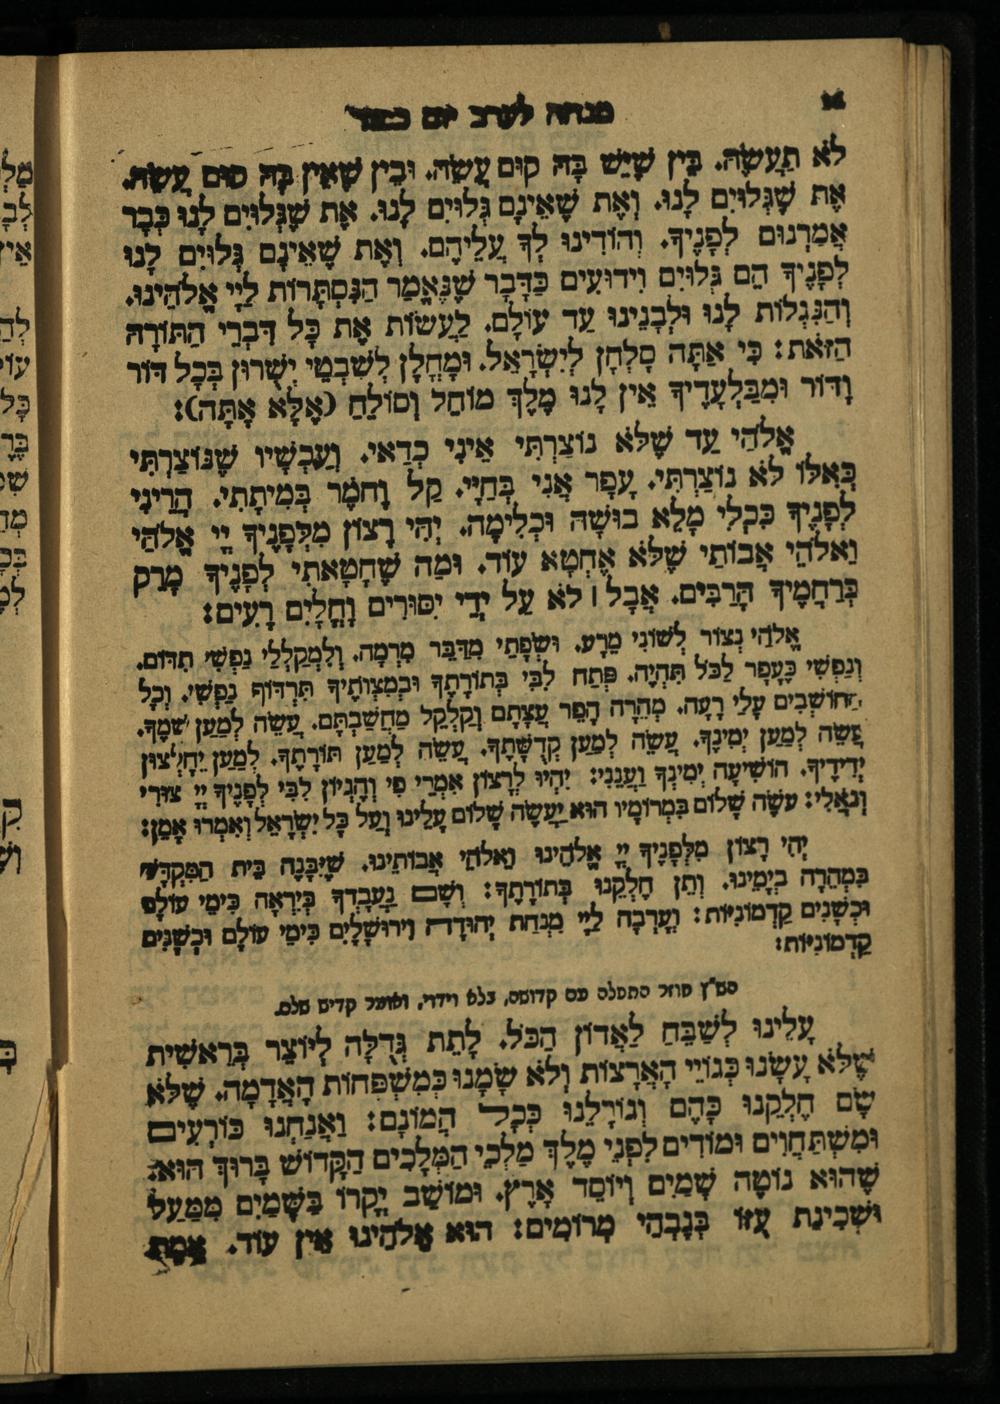 מנחה לערב יום כפור
לֹא תַעֲשֶׂה. בֵּין שֶׁיֵּשׁ בָּהּ קוּם עֲשֵׂה. וּבֵין שֶׁאֵין בָּהּ קוּם עֲשֵׂה.
אֶת שֶׁגְּלוּיִם לָנוּ. וְאֶת שֶׁאֵינָם גְּלוּיִם לָנוּ. אֶת שֶׁגְּלוּיִם לָנוּ כְּבָר
אֲמַרְנוּם לְפָנֶיךָ. וְהוֹדִינוּ לְךָ עֲלֵיהֶם. וְאֶת שֶׁאֵינָם גְּלוּיִם לָנוּ
לְפָנֶיךָ הֵם גְּלוּיִם וִידוּעִים כַּדָּבָר שֶׁנֶּאֱמַר הַנִּסְתָּרוֹת לַיְיָ אֱלֹהֵינוּ.
וְהַנִּגְלוֹת לָנוּ וּלְבָנֵינוּ עַד עוֹלָם. לַעֲשׂוֹת אֶת כָּל דִּבְרֵי הַתּוֹרָה
הַזֹּאת: כִּי אַתָּה סָלְחָן לְיִשְׂרָאֵל. וּמָחֳלָן לְשִׁבְטֵי יְשֻׁרוּן בְּכָל דּוֹר
וָדוֹר וּמִבַּלְעָדֶיךָ אֵין לָנוּ מֶלֶךְ מוֹחֵל וְסוֹלֵחַ (אֶלָּא אָתָּה):
אֱלֹהַי עַד שֶׁלֹּא נוֹצַרְתִּי אֵינִי כְדַאי. וְעַכְשָׁיו שֶׁנּוֹצַרְתִּי
כְּאִלּוּ לֹא נוֹצַרְתִּי. עָפָר אֲנִי בְּחַיָּי. קַל וָחֹמֶר בְּמִיתָתִי. הֲרֵינִי
לְפָנֶיךָ כִּכְלִי מָלֵא בוּשָׁה וּכְלִימָה. יְהִי רָצוֹן מִלְּפָנֶיךָ יְיָ אֱלֹהַי
וֵאלֹהֵי אֲבוֹתַי שֶׁלֹּא אֶחֱטָא עוֹד. וּמַה שֶּׁחָטָאתִי לְפָנֶיךָ מָרֵק
בְּרַחֲמֶיךָ הָרַבִּים. אֲבָל ׀ לֹא עַל יְדֵי יִסּוּרִים וָחֳלָיִם רָעִים:
אֱלֹהַי נְצוֹר לְשׁוֹנִי מֵרָע. וּשְׂפָתַי מִדַּבֵּר מִרְמָה. וְלִמְקַלְלַי נַפְשִׁי תִדּוֹם.
וְנַפְשִׁי כֶּעָפָר לַכֹּל תִּהְיֶה. פְּתַח לִבִּי בְּתוֹרָתֶךָ וּבְמִצְוֹתֶיךָ תִּרְדּוֹף נַפְשִׁי. וְכָל
הַחוֹשְׁבִים עָלַי רָעָה. מְהֵרָה הָפֵר עֲצָתָם וְקַלְקֵל מַחֲשַׁבְתָּם. עֲשֵׂה לְמַעַן שְׁמֶךָ.
עֲשֵׂה לְמַעַן יְמִינֶךָ. עֲשֵׂה לְמַעַן קְדֻשָּׁתֶךָ. עֲשֵׂה לְמַעַן תּוֹרָתֶךָ. לְמַעַן יֵחָלְצוּן
יְדִידֶיךָ. הוֹשִׁיעָה יְמִינְךָ וַעֲנֵנִי: יִהְיוּ לְרָצוֹן אִמְרֵי פִי וְהֶגְיוֹן לִבִּי לְפָנֶיךָ יְיָ צוּרִי
וְגוֹאֲלִי: עֹשֶׂה שָׁלוֹם בִּמְרוֹמָיו הוּא יַעֲשֶׂה שָׁלוֹם עָלֵינוּ וְעַל כָּל יִשְׂרָאֵל וְאִמְרוּ אָמֵן:
יְהִי רָצוֹן מִלְּפָנֶיךָ יְיָ אֱלֹהֵינוּ וֵאלֹהֵי אֲבוֹתֵינוּ. שֶׁיִּבָּנֶה בֵּית הַמִּקְדָּשׁ
בִּמְהֵרָה בְיָמֵינוּ. וְתֵן חֶלְקֵנוּ בְּתוֹרָתֶךָ: וְשָׁם נַעֲבָדְךָ בְּיִרְאָה כִּימֵי עוֹלָם
וּכְשָׁנִים קַדְמוֹנִיּוֹת: וְעָרְבָה לַיְיָ מִנְחַת יְהוּדָה וִירוּשָׁלָיִם כִּימֵי עוֹלָם וּכְשָׁנִים
קַדְמוֹנִיּוֹת:
הש"ץ חוזר התפלה עם קדושה, בלא וידוי, ואומר קדיש שלם.
עָלֵינוּ לְשַׁבֵּחַ לַאֲדוֹן הַכֹּל. לָתֵת גְּדֻלָּה לְיוֹצֵר בְּרֵאשִׁית
שֶׁלֹּא עָשָׂנוּ כְּגוֹיֵי הָאֲרָצוֹת וְלֹא שָׂמָנוּ כְּמִשְׁפְּחוֹת הָאֲדָמָה. שֶׁלֹּא
שָׂם חֶלְקֵנוּ כָּהֶם וְגוֹרָלֵנוּ כְּכָל הֲמוֹנָם: וַאֲנַחְנוּ כּוֹרְעִים
וּמִשְׁתַּחֲוִים וּמוֹדִים לִפְנֵי מֶלֶךְ מַלְכֵי הַמְּלָכִים הַקָּדוֹשׁ בָּרוּךְ הוּא:
שֶׁהוּא נוֹטֶה שָׁמַיִם וְיוֹסֵד אָרֶץ. וּמוֹשַׁב יְקָרוֹ בַּשָּׁמַיִם מִמַּעַל
וּשְׁכִינַת עֻזּוֹ בְּגָבְהֵי מְרוֹמִים: הוּא אֱלֹהֵינוּ אֵין עוֹד. אֱמֶת